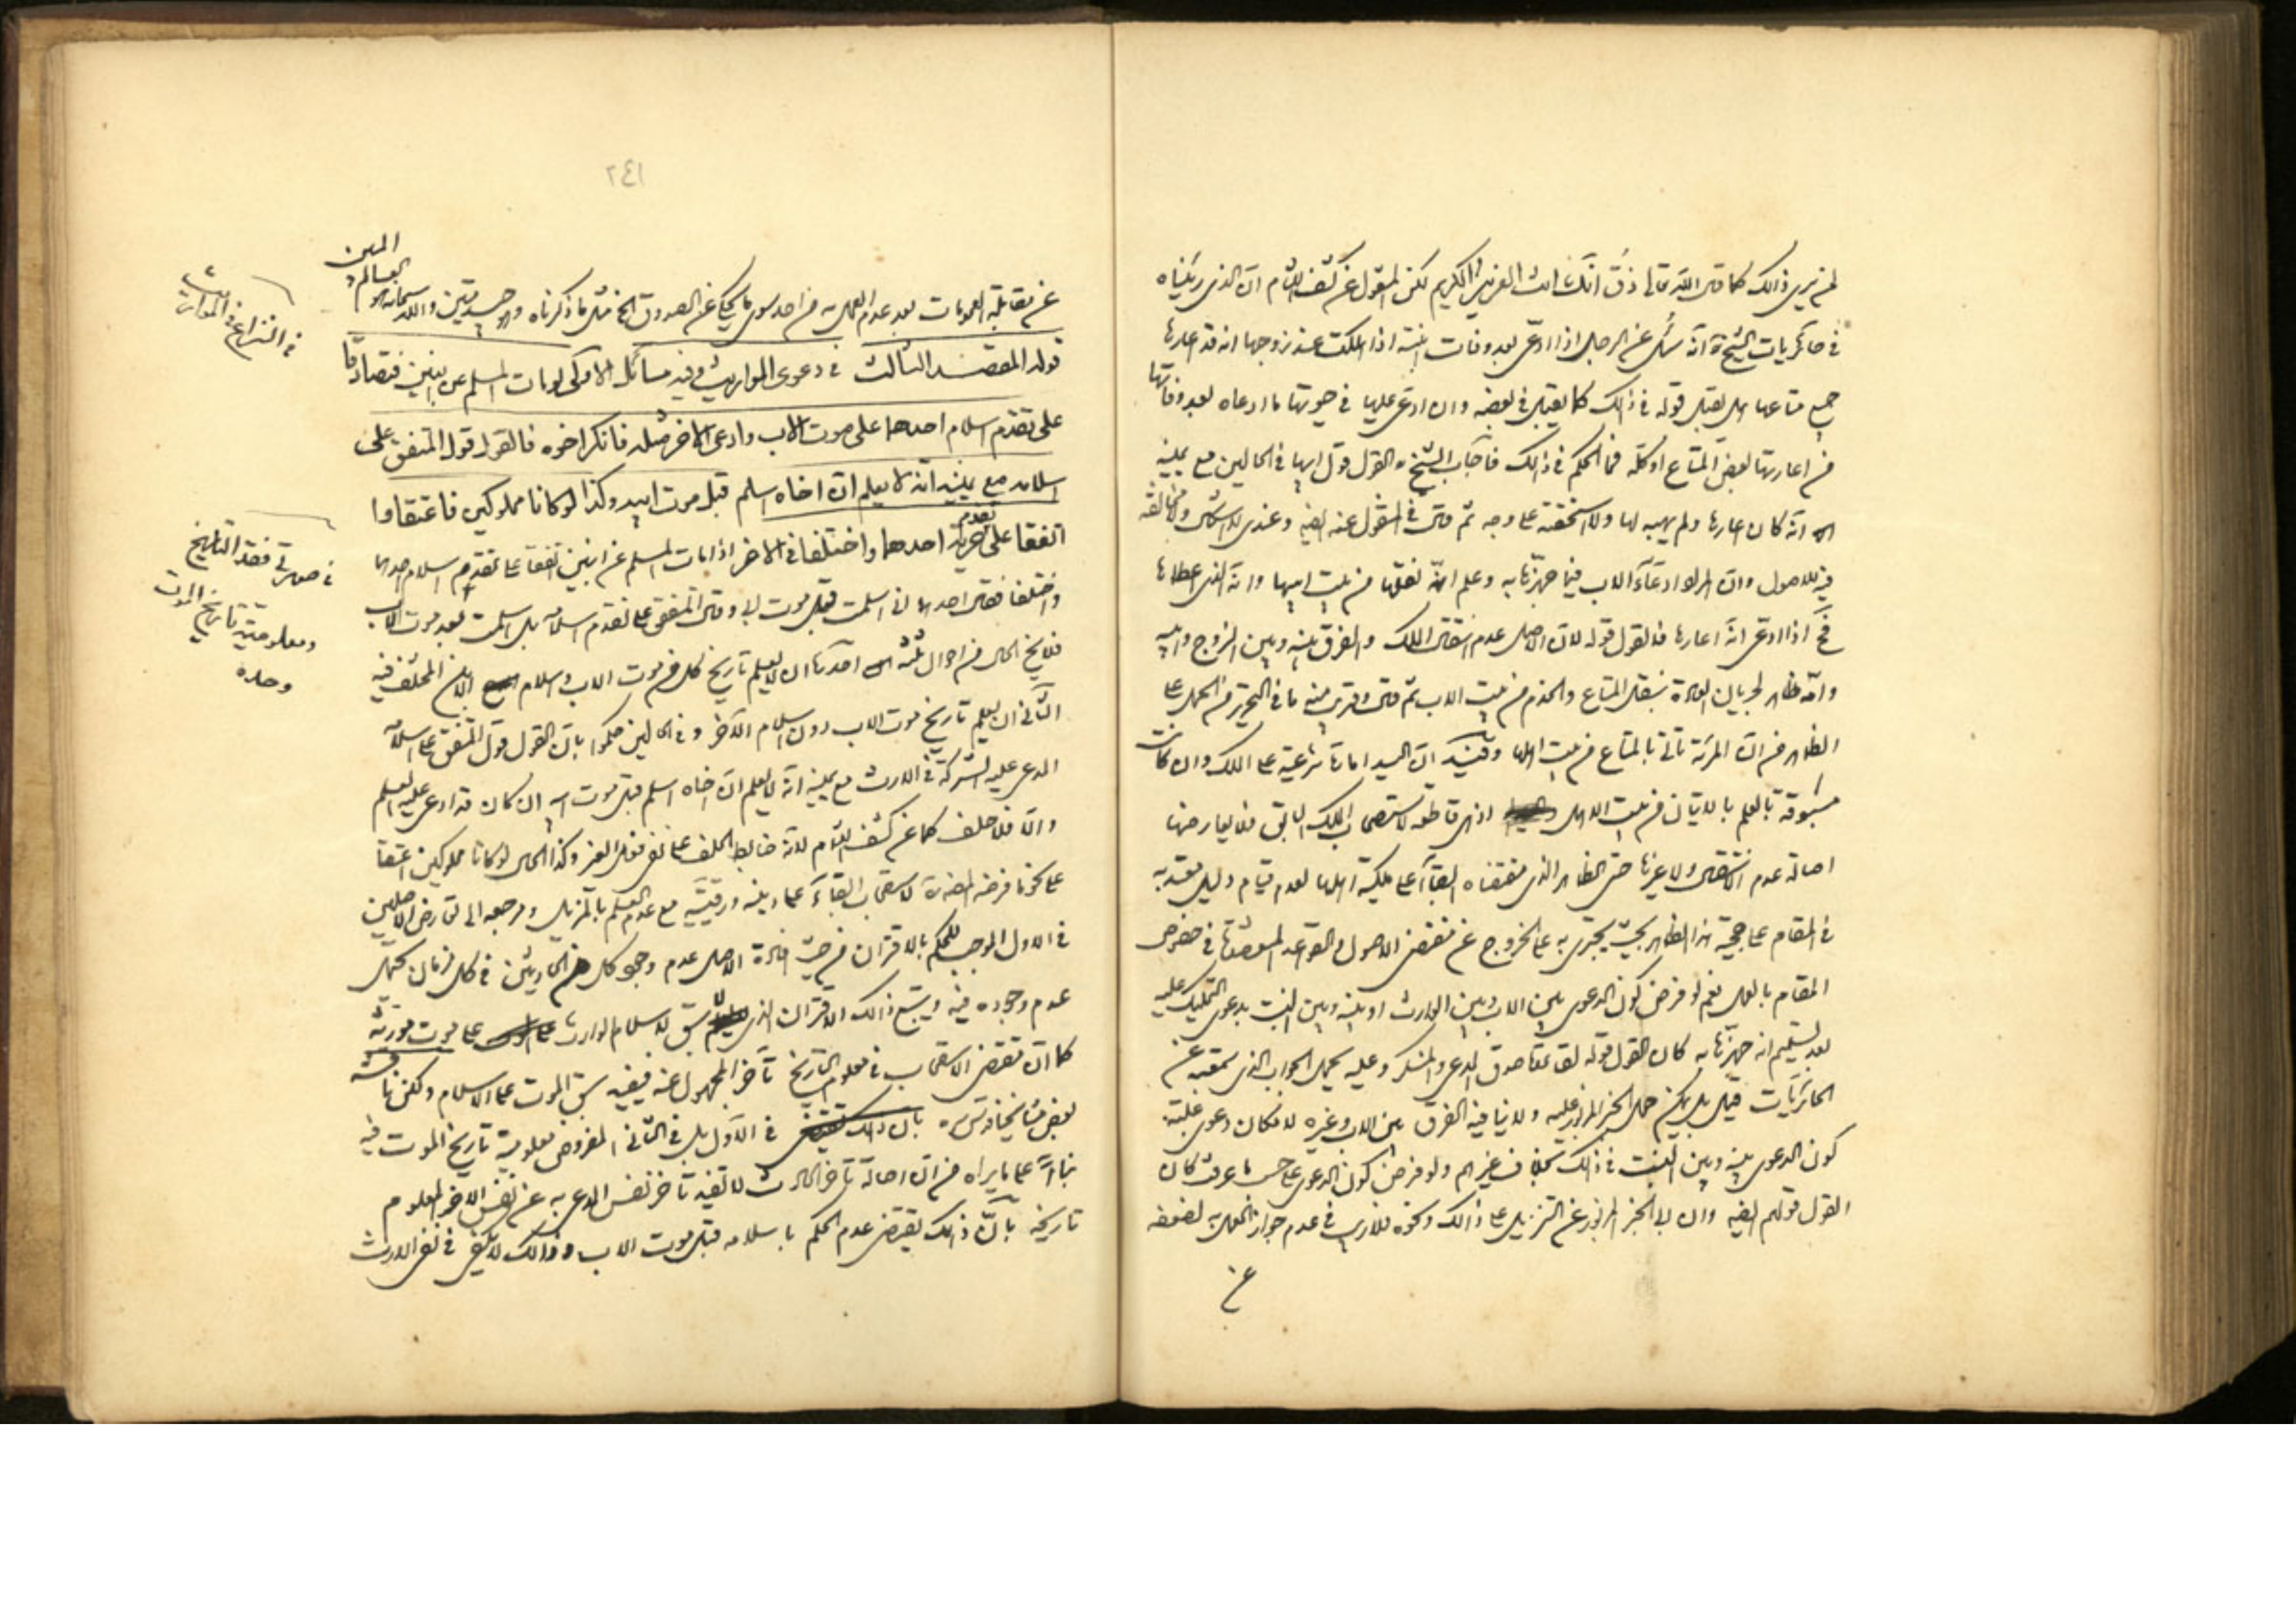 لمن يرى ذالك كما قال الله تعالى ذق انك انت العزيز الكريم لكن المنقول عن كشف اللثام ان الذى رأيناه
فى حائريات الشيخ ره انه سئل عن الرجل اذا ادعى بعد وفات ابنته اذا هلكت عند زوجها انه قد اعارها
جميع متاعها هل يقبل قوله فى ذالك كما يقبل فى بعضه وان ادعى عليها فى حيوتها ما ادعاه بعد وفاتها
من اعارتها بعض المتاع او كله فما الحكم فى ذالك فاجاب الشيخ ره القول قول ابيها فى الحالين مع يمينه
انه كان اعارها ولم يهبه لها ولا استحقته على وجه ثم قال فى المنقول عنه ايضا وعندى لا اشكال ولا مخالفة
فيه للاصول وان المراد ادعاء الاب فيما جهزها به وعلم انه نقلها من بيت ابيها وانه الذى اعطاها
فح اذا ادعى انه اعارها فالقول قوله لان الاصل عدم انتقال الملك والفرق بينه وبين الزوج وابيه
وانه ظاهر لجريان العادة بنقل المتاع والخدم من بيت الاب ثم قال وقريب منه ما فى التحرير من الحمل على
الظاهر من ان المرئة تأتى بالمتاع من بيت اهلها وفيه ان اليد امارة شرعية على الملك وان كانت
مسبوقة بالعلم بالاتيان من بيت الاهل اذ هى قاطعة لاستصحاب الملك السابق فلا يعارضها
اصالة عدم الانتقال ولا غيرها حتى الظاهر الذى مقتضاه البقاء على ملكية اهلها لعدم قيام دليل معتد به
فى المقام على حجية هذا الظاهر بحيث يجترى به على الخروج عن مقتضى الاصول والقواعد فى خصوص
المقام بالعمل نعم لو فرض كون الدعوى بين الاب وبين الوارث او بينه وبين البنت بدعوى التمليك عليه
بعد تسليم انه جهزها به كان القول قوله المدعى والمنكر وعليه يحمل الجواب الذى سمعته عن
الحائريات قيل بل يمكن حمل الخبر المزبور عليه ولا ينافيه الفرق بين الاب وغيره لامكان دعوى غلبة
كون الدعوى بينه وبين البنت فى ذالك بخلاف غيرهم ولو فرض كون الدعوى على حسب ما عرفت كان
القول قولهم ايضا وان ابى الخبر المزبور عن التنزيل على ذالك ونحوه فلا ريب فى عدم جواز العمل به لضعفه
عن
٢٤١
عن مقابلة العمومات بعد عدم العمل به من احد سوى ما يحكى عن الصدوق الخ مثل ما ذكرناه وهو جيد متين والله سبحانه هو
العالم
المعين
قوله المقصد الثالث فى دعوى المواريث وفيه مسائل الاولى لو مات المسلم عن ابنين فتصادقا
على تقدم اسلام احدهما على موت الاب وادعى الاخر مثله فانكر اخوه فالقول قول المتفق على
اسلامه مع يمينه انه لا يعلم ان اخاه اسلم قبل موت ابيه وكذا لو كانا مملوكين فاعتقا وا
اتفقا على تقدم حرية احدهما واختلفا فى الاخر اذا مات المسلم عن ابنين اتفقا على تقدم اسلام احدهما
واختلفا فقال احدهما انى اسلمت قبل موت ابى وقال المتفق على تقدم اسلامه بل اسلمت بعد موت الاب
فلا يخ الحال من احوال ثلثه احدها ان لا يعلم تاريخ كل من موت الاب واسلام الابن المختلف فيه
الثانى ان يعلم تاريخ موت الاب دون اسلام الاخر وفى الحالين حكموا بان القول قول المتفق على اسلامه
المدعى عليه الشركة فى الارث مع يمينه انه لا يعلم ان اخاه اسلم قبل موت ابيه ان كان قد ادعى عليه العلم
والا فلا حلف كما عن كشف اللثام لانه ضابط الحلف على نفى فعل الغير وكذا الحال لو كانا مملوكين اعتقا
على نحو ما فرضه المصنف ره لاستصحاب البقاء على دينه ورقيته مع عدم العلم بالمزيل ومرجعه الى تعارض الاصلين
فى الاول الموجب للحكم بالاقتران من حيث افادة الاصل عدم وجود كل من الحادثين فى كل زمان يحتمل
عدم وجوده فيه ويتبع ذالك الاقتران الذى لا سبق لاسلام الوارث على موت مورثه
كما ان مقتضى الاستصحاب فى معلوم التاريخ تأخر المجهول عنه فيفيد سبق الموت على الاسلام ولكن ناقشه
بعض مشايخنا قدس سره فى الاول بل فى الثانى المفروض معلومية تاريخ الموت فيه
بناء على ما يراه من ان اصالة تأخر الحادث لا تفيد تأخر نفس المدعى به عن نفس الاخر المعلوم
تاريخه بان ذالك يقتضى عدم الحكم باسلامه قبل موت الاب وذالك لا يكفى فى نفى الارث
فى النزاع فى المواريث
فى صورتى فقد التاريخ
ومعلومية تاريخ الموت
وحده